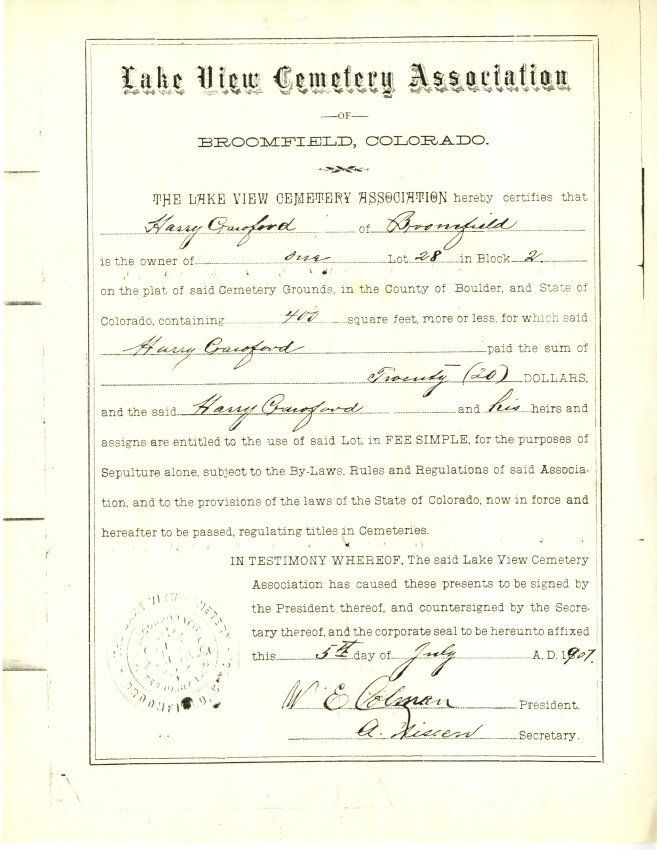 Lake View Cemetery Association
—OF—
BROOMFIELD, COLORADO.
THE LAKE VIEW CEMETERY ASSOCIATION hereby certifies that
Harry Crawford of Broomfield
is the owner of one Lot 28 in Block 2
on the plat of said Cemetery Grounds, in the County of Boulder, and State of
Colorado, containing 400 square feet, more or less, for which said
Harry Crawford paid the sum of
Twenty (20) DOLLARS,
and the said Harry Crawford and his heirs and
assigns are entitled to the use of said Lot, in FEE SIMPLE, for the purposes of
Sepulture alone, subject to the By-Laws, Rules and Regulations of said Associa-
tion, and to the provisions of the laws of the State of Colorado, now in force and
hereafter to be passed, regulating titles in Cemeteries.
IN TESTIMONY WHEREOF, The said Lake View Cemetery
Association has caused these presents to be signed by
the President thereof, and countersigned by the Secre-
tary thereof, and the corporate seal to be hereunto affixed
this 5th day of July A, D. 1907.
W E Colman President.
A. Nissen Secretary.